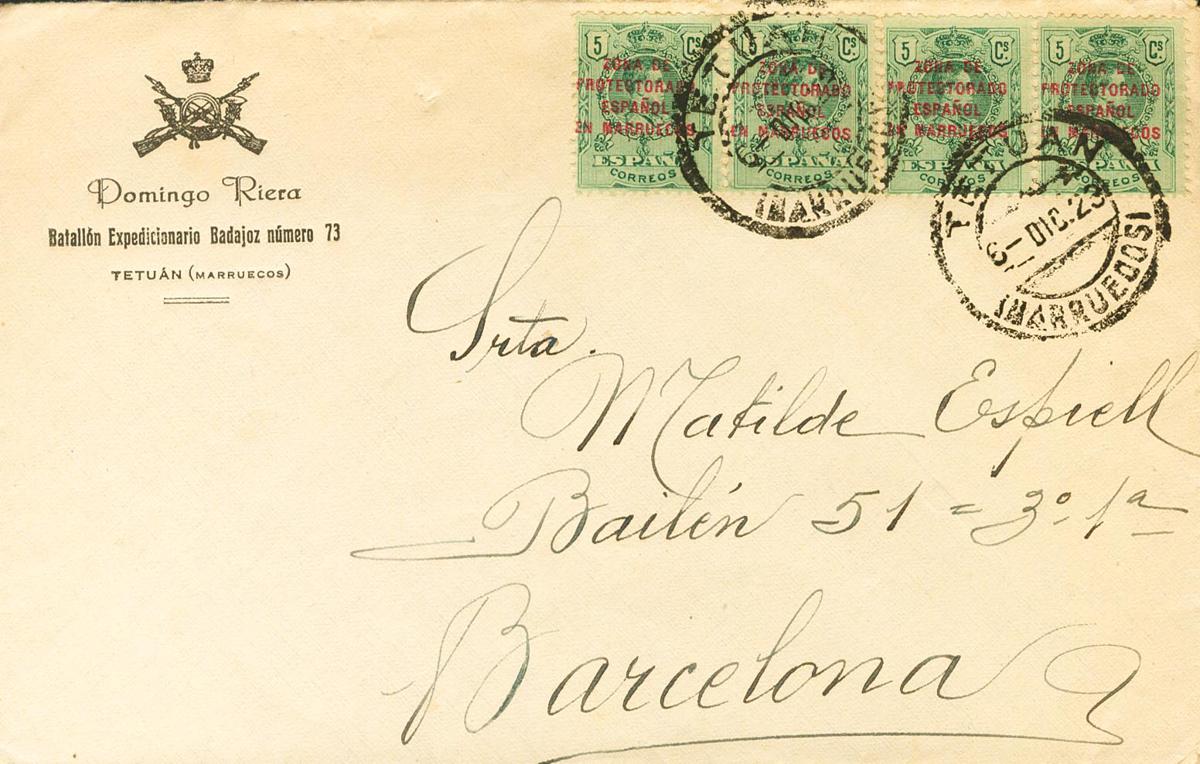 Domingo Riera
Batallón Expedicionario Badajoz número 73
TETUÁN (MARRUECOS)
5 Cs 5 Cs 5 Cs 5 Cs
ZONA DE PROTECTORADO ESPAÑOL EN MARRUECOS
ESPAÑA
CORREOS
ZONA DE PROTECTORADO ESPAÑOL EN MARRUECOS
ESPAÑA
CORREOS
ZONA DE PROTECTORADO ESPAÑOL EN MARRUECOS
ESPAÑA
CORREOS
ZONA DE PROTECTORADO ESPAÑOL EN MARRUECOS
ESPAÑA
CORREOS
TETUAN
(MARRUECOS)
TETUAN
6 - DIC. 23
(MARRUECOS)
Srta.
Matilde Espiell
Bailén 51 = 3º 1ª
Barcelona